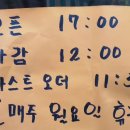 오픈 17:00
마감 12:00
라스트오더 11:3
매주 월요일 휴